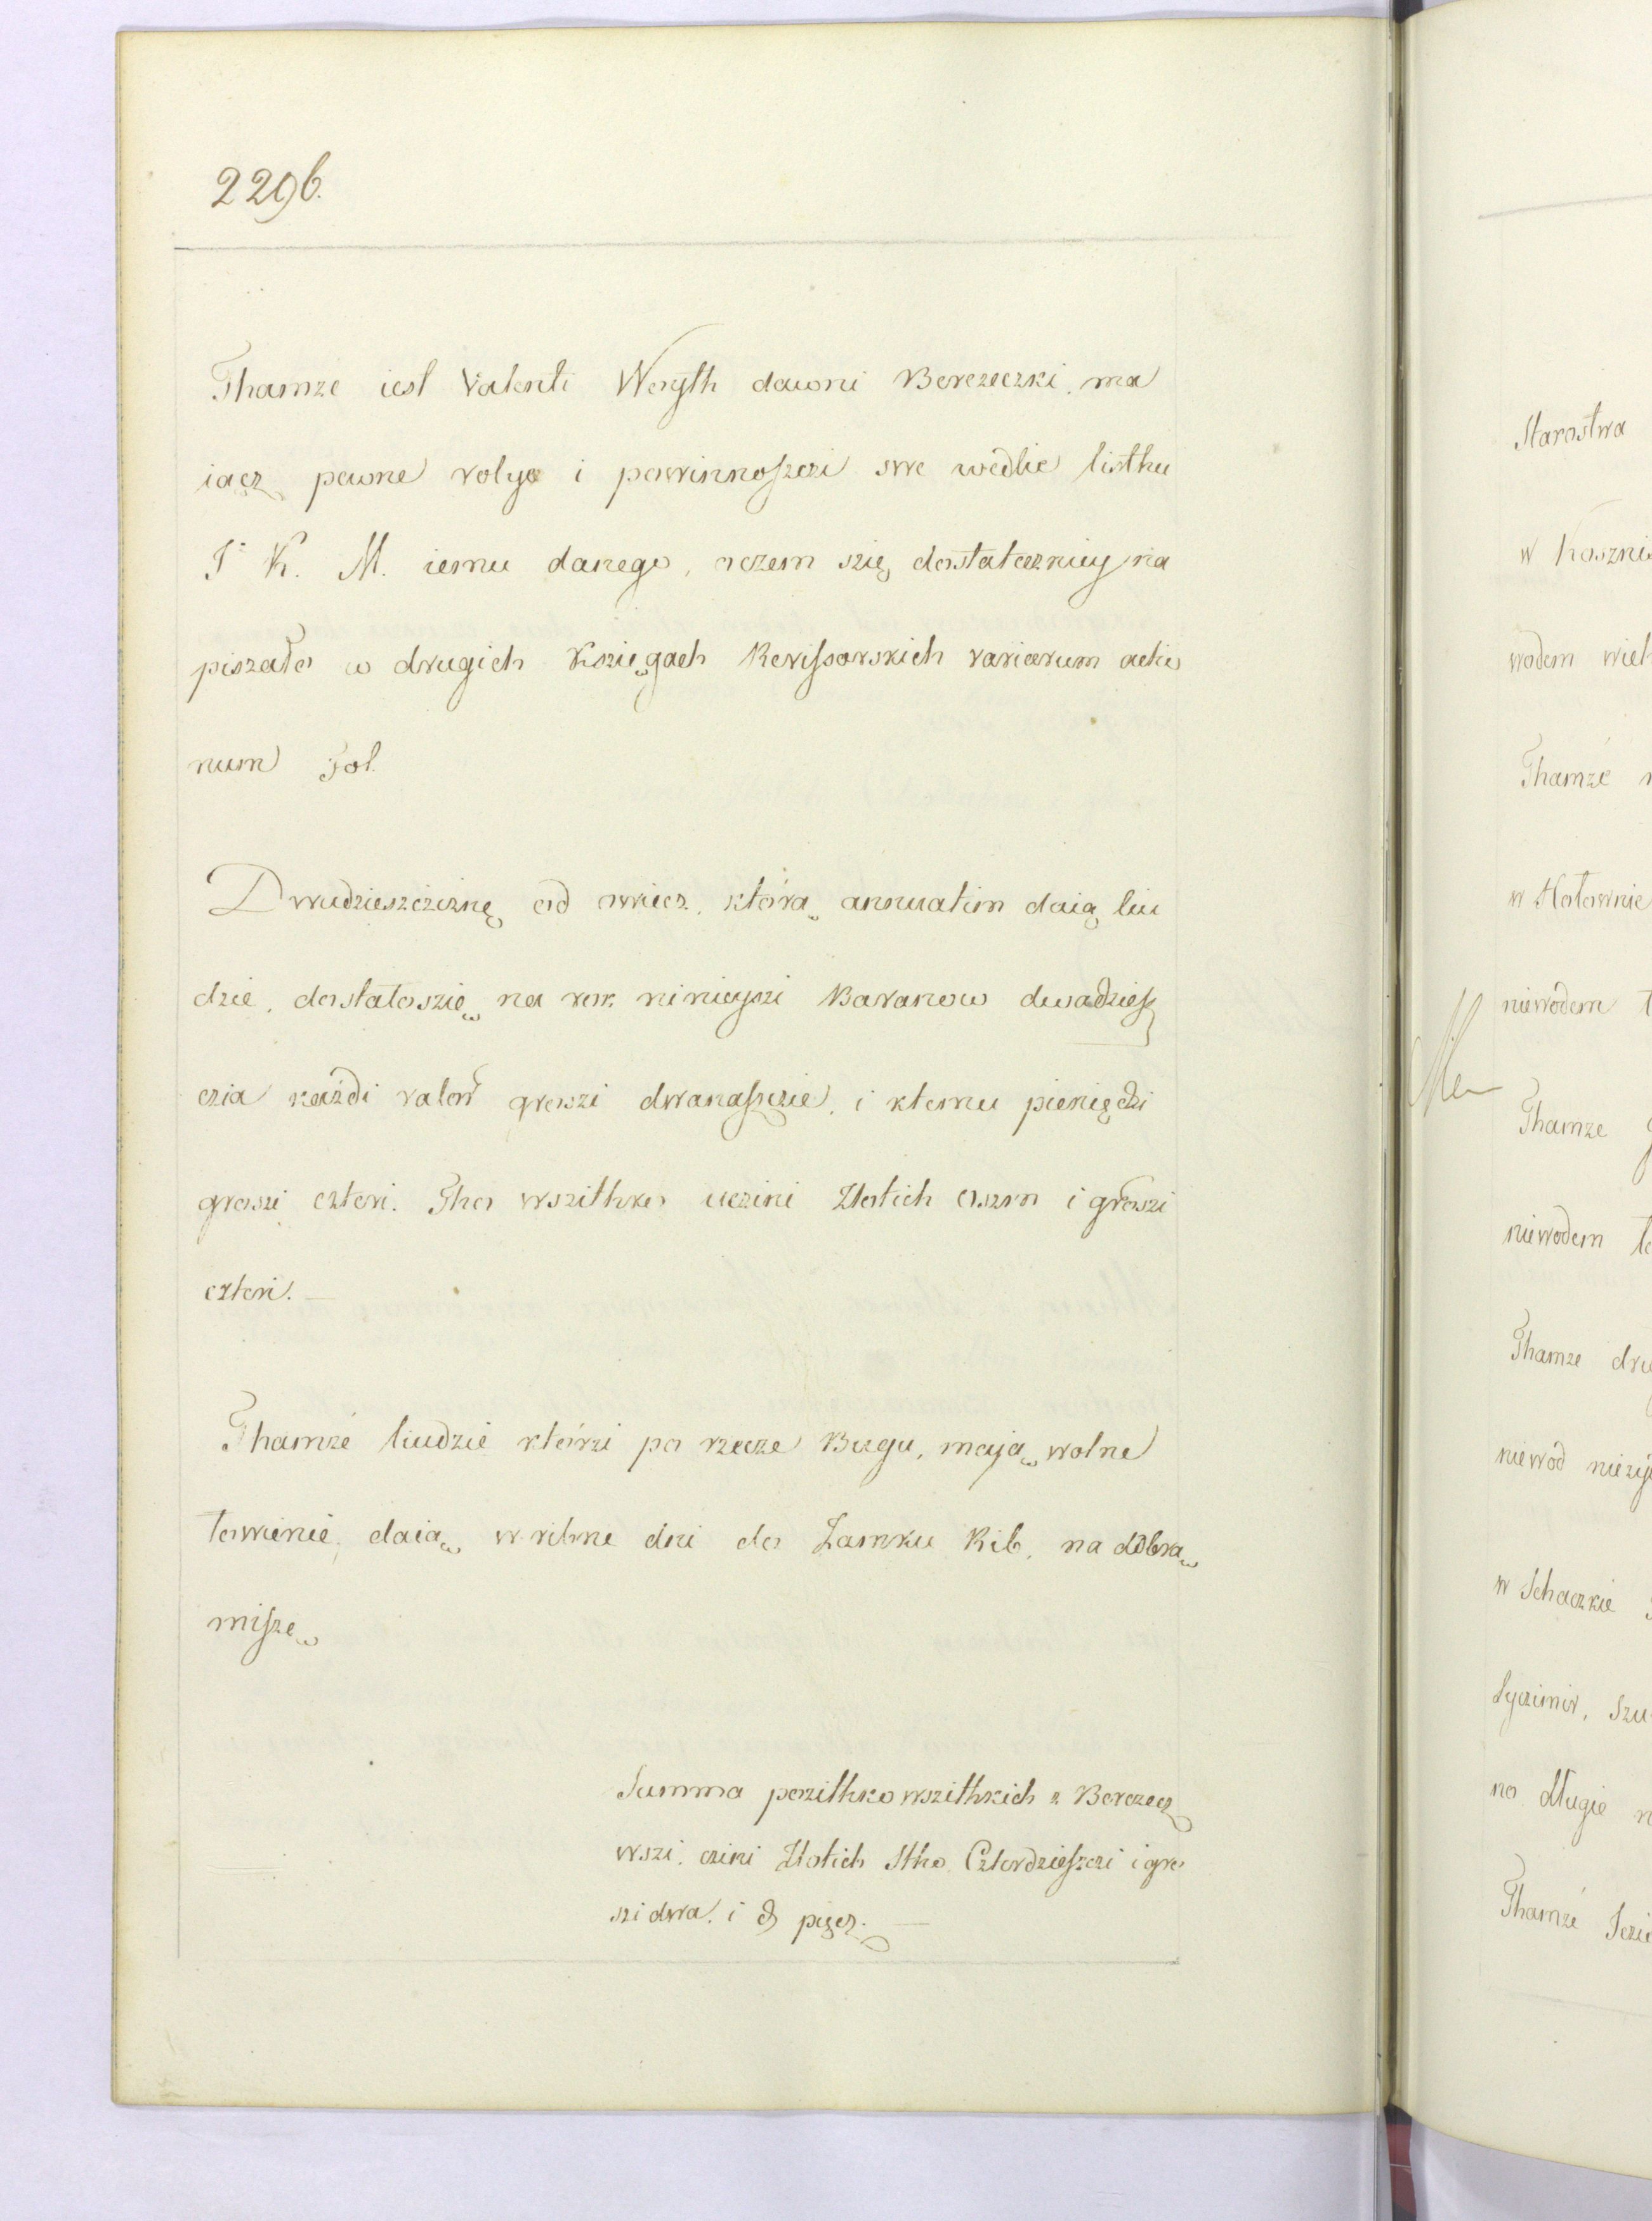 2296.
Thamze iest Valenti Woyth dawni Berezeczki, ma
iącz pewne rolye i powinnoszczi swe wedlie listhu
J K. M. iemu danego, oczem szię dostateczniey na
piszało w drugich Księgach Revissorskich variarum actio
num Fol.
Dwudzieszcziznę od owiecz, którą annuatim daią liu
dzie, dostałoszię na rok ninieyszi Baranow dwadziesz
czia każdi valor groszi dwanaszczie, i ktemu pieniędzi
groszi czteri. Tho wszithko uczini Złotich oszm i groszi
czteri.
Thamże liudzie którzi po rzecze Bugu, mają wolne
łowienie, daią w ribne dni do Zamku Rib, na dobrą
miszę
Summa pozithko wszithkich z Berezecz
wszi, czini Złotich Stho Czterdzieszczi i gro
szi dwa, i ₰ pięcz.
Starostwa
w
wodem
Thamże
w Hołownie
niewodem
Thamze
niewodem
Thamze
niewód
w Schaczkie
no długie
Thamże